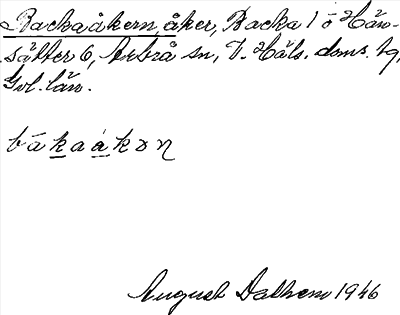 Backaåkern, åker, Backa 1 o Hän-
sätter 6, Arbrå sn, V. Häls. doms. tg,
Gvl. län.
bákaàkən
August Dalhem 1946